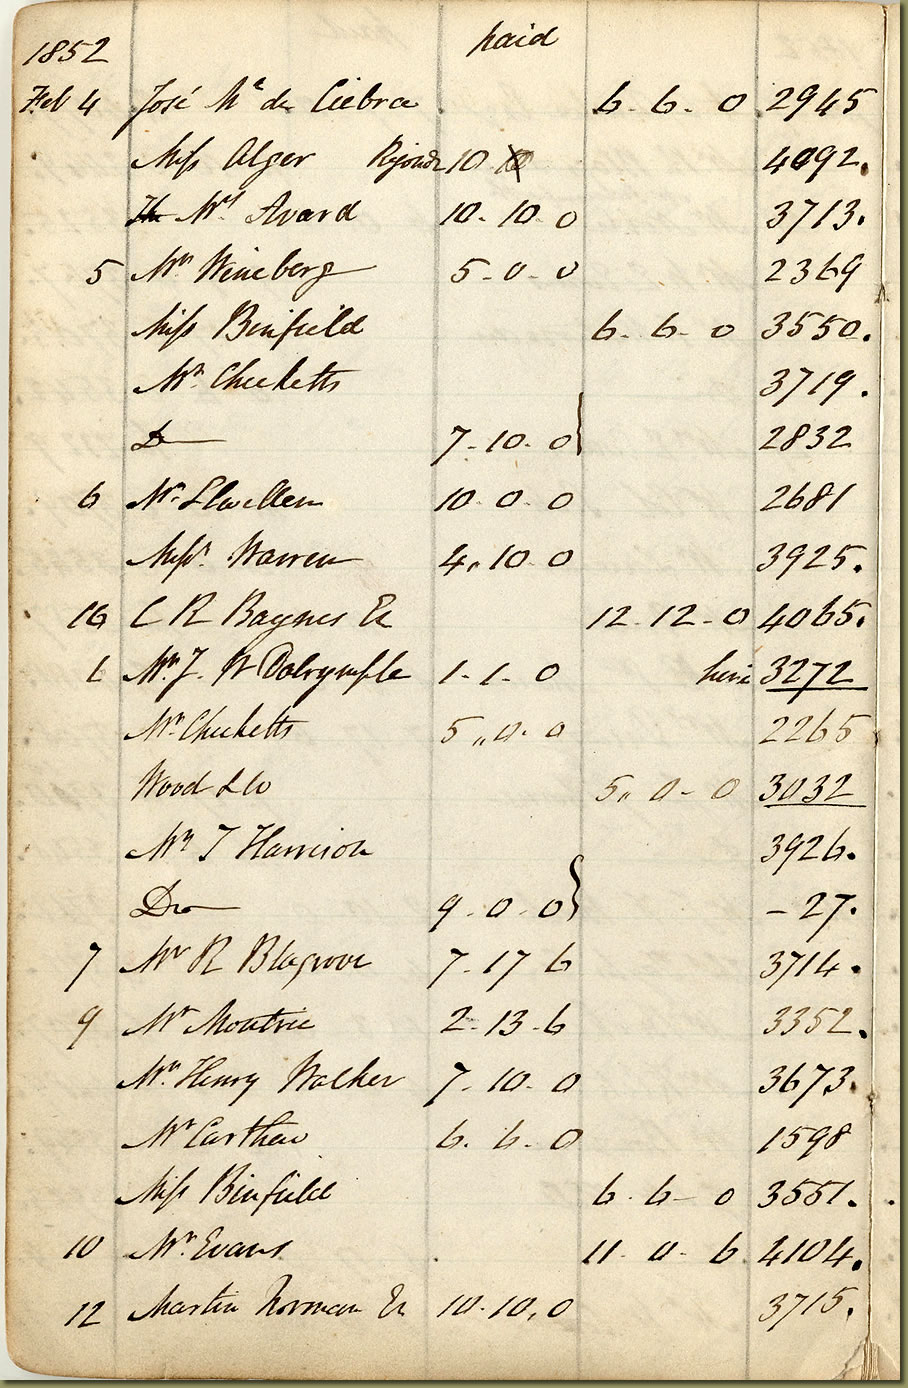 1852 paid
Feb 4 José Ma de Ciebra 6. 6. 0 2945
Miss Alger 10 4092.
Mrs Avard 10. 10. 0 3713.
5 Mr. Wineberg 5. 0. 0 2369
Miss Binfield 6. 6. 0 3550.
Mr. Checketts 3719.
Do 7. 10. 0 2832
6 Mr. Llwellen 10. 0. 0 2681
Missrs Warren 4,, 10. 0 3925.
16 C R Baynes Es 12. 12. 0 4065.
Mr. J. W Dalrymple 1. 1. 0 hire 3272
Mr. Checketts 5,, 0. 0 2265
Wood & Co 5,, 0. 0 3032
Mr. T Harrison 3926.
Dro 9. 0. 0 – 27.
7 Mr R Blagrove 7. 17 6 3714.
9 Mr Moutrie 2. 13. 6 3352.
Mr. Henry Walker 7. 10. 0 3673.
Mr Carthew 6. 6. 0 1598
Miss Binfield 6. 6 – 0 3551.
10 Mr. Evans 11. 0. 6 4104.
12 Martin Norman Es 10. 10. 0 3715.